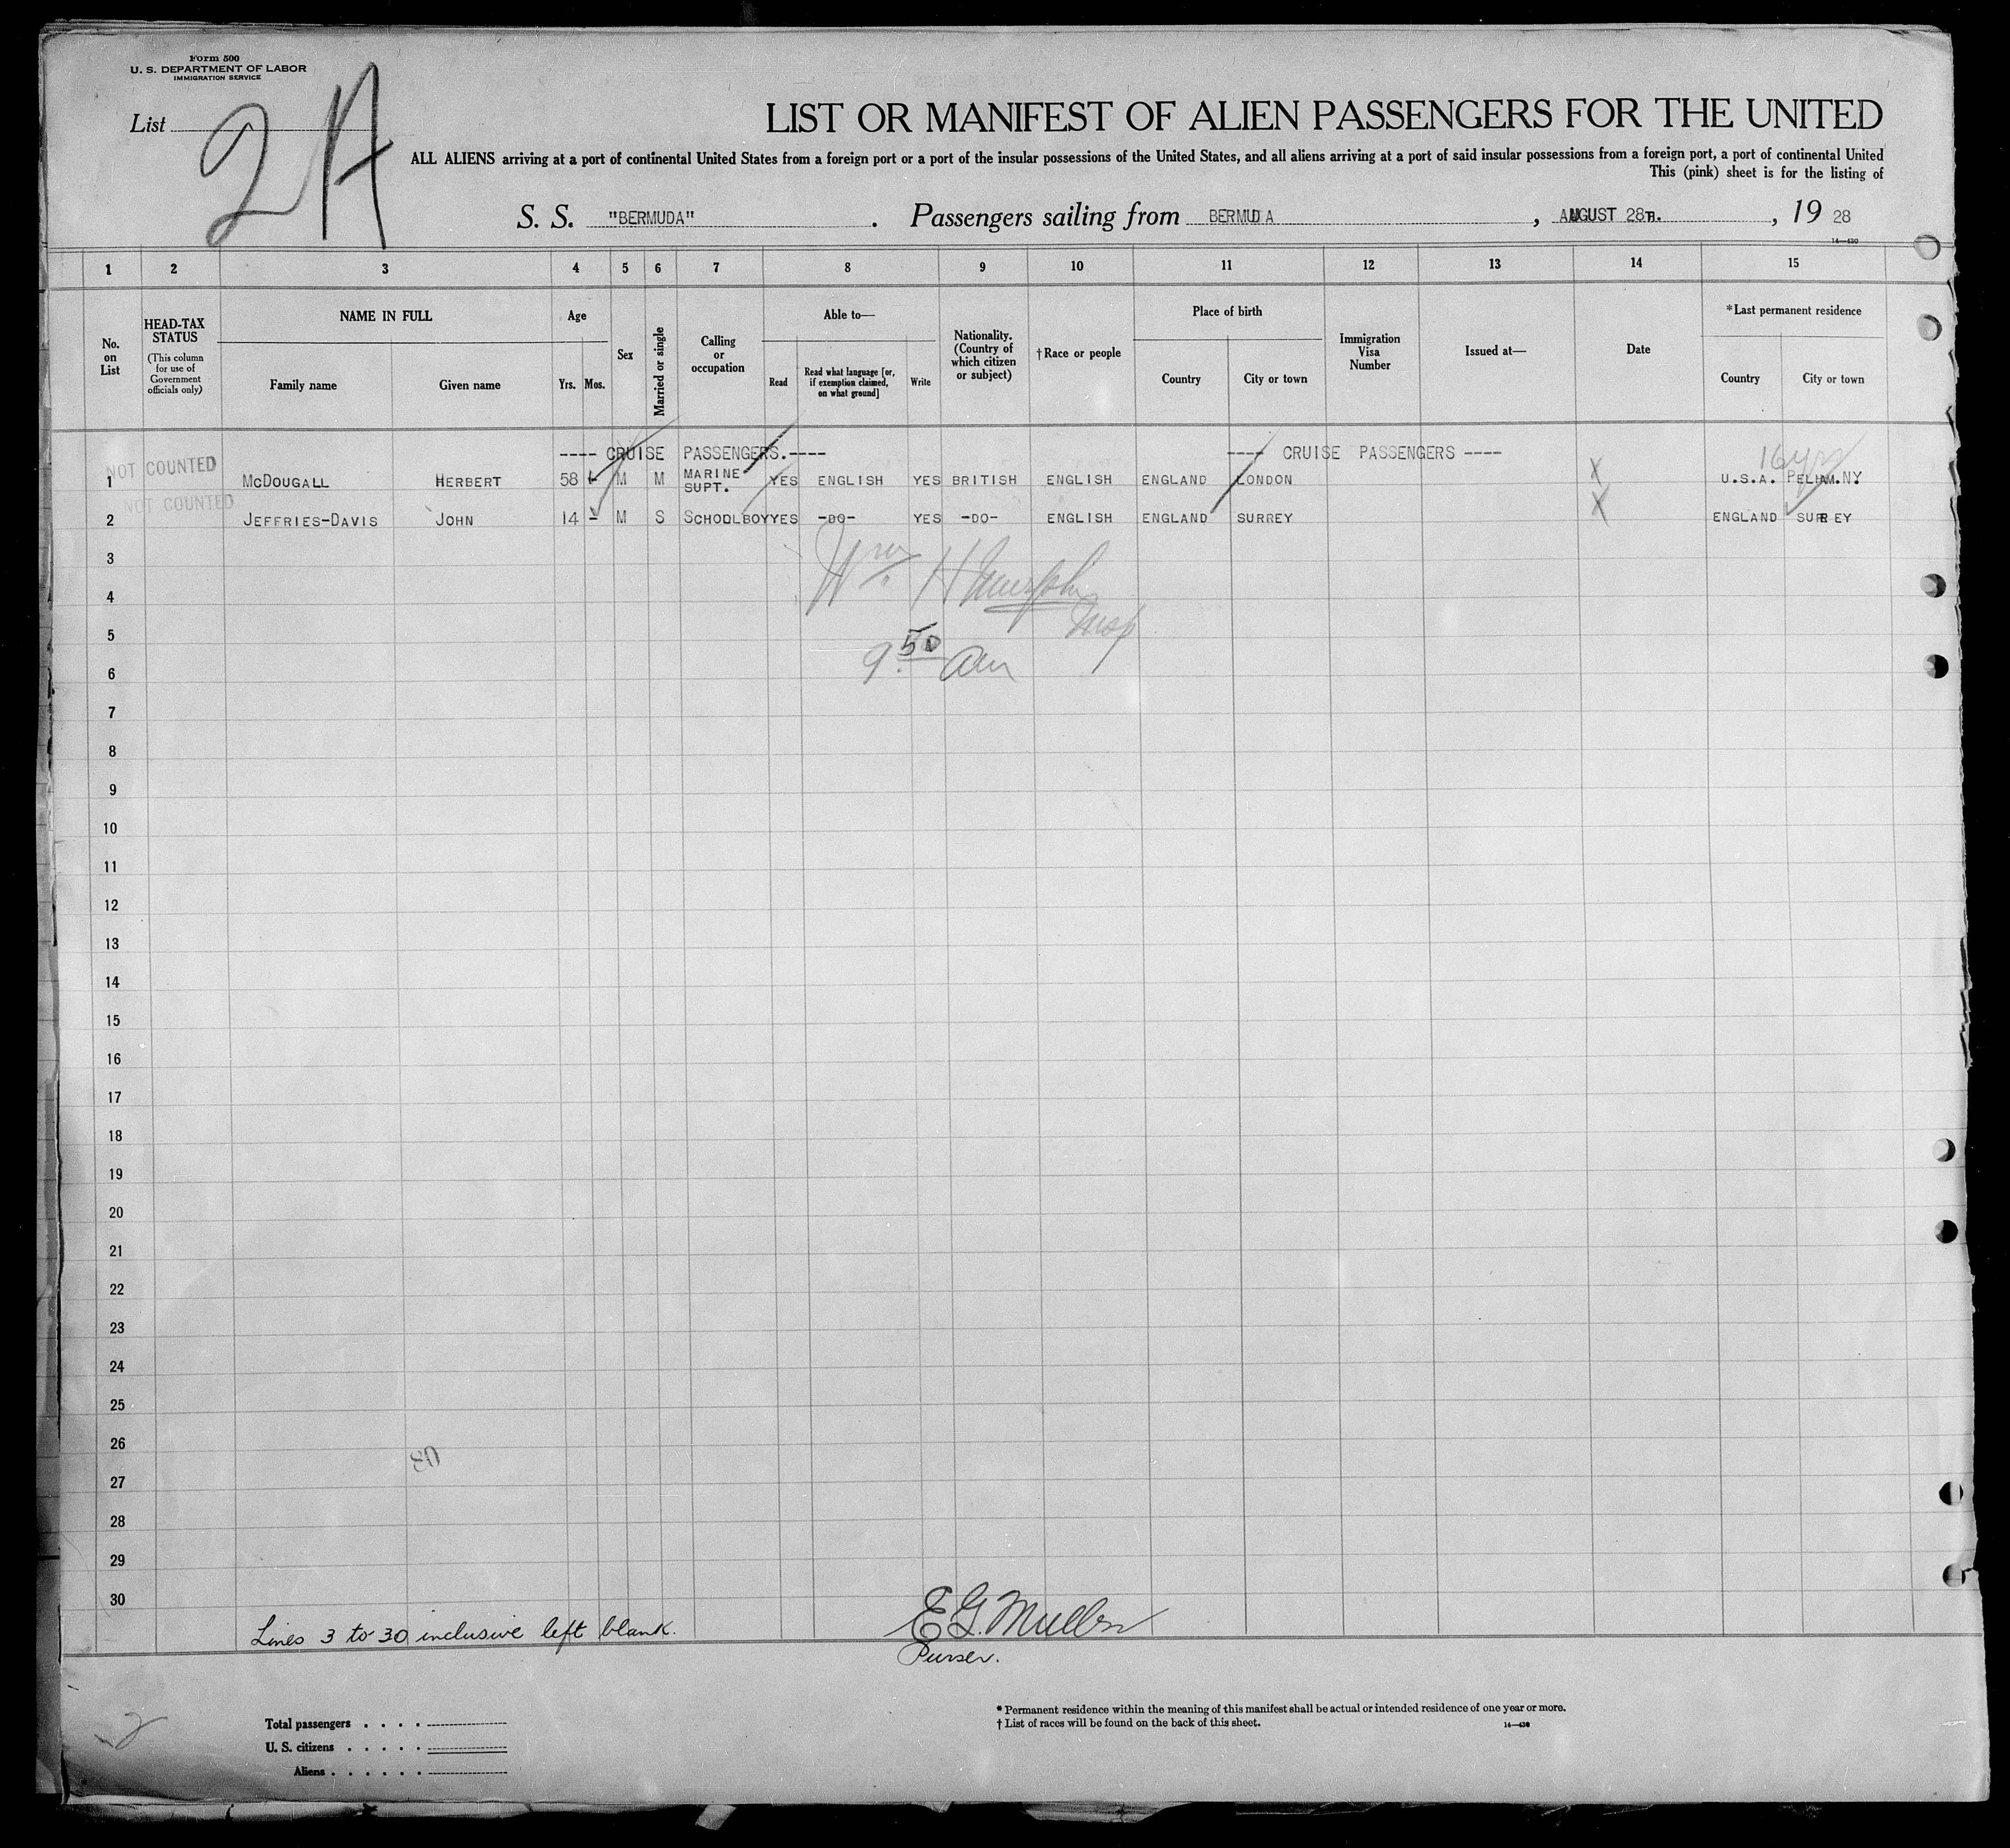 Form 500
U. S. DEPARTMENT OF LABOR
IMMIGRATION SERVICE
List 2A
LIST OR MANIFEST OF ALIEN PASSENGERS FOR THE UNITED
ALL ALIENS arriving at a port of continental United States from a foreign port or a port of the insular possessions of the United States, and all aliens arriving at a port of said insular possessions from a foreign port, a port of continental United
This (pink) sheet is for the listing of
S. S. "BERMUDA". Passengers sailing from BERMUDA, AUGUST 28TH., 19 28
14—430
1 2 3 4 5 6 7 8 9 10 11 12 13 14 15
No. on List
HEAD-TAX STATUS (This column for use of Government officials only)
NAME IN FULL
Family name Given name
Age
Yrs. Mos.
Sex
Married or single
Calling or occupation
Able to—
Read Read what language [or, if exemption claimed, on what ground] Write
Nationality. (Country of which citizen or subject)
†Race or people
Place of birth
Country City or town
Immigration Visa Number
Issued at—
Date
*Last permanent residence
Country City or town
---- CRUISE PASSENGERS.---- ---- CRUISE PASSENGERS ----
16 yrs
NOT COUNTED
1 McDOUGALL HERBERT 58 - M M MARINE SUPT. YES ENGLISH YES BRITISH ENGLISH ENGLAND LONDON X U.S.A. PELHAM.NY.
NOT COUNTED
2 JEFFRIES-DAVIS JOHN 14 - M S SCHOOLBOY YES -DO- YES -DO- ENGLISH ENGLAND SURREY X ENGLAND SURREY
3
Wm. H Murphy
4
Insp
5
9.50 am
6
7
8
9
10
11
12
13
14
15
16
17
18
19
20
21
22
23
24
25
26
80
27
28
29
30
Lines 3 to 30 inclusive left blank. E G. Muller
Purser.
2
Total passengers
U. S. citizens
Aliens
* Permanent residence within the meaning of this manifest shall be actual or intended residence of one year or more.
† List of races will be found on the back of this sheet. 14—430